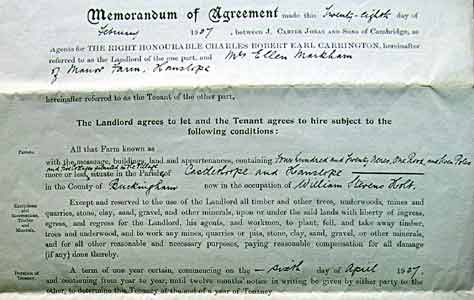 Memorandum of Agreement made this Twenty-eighth day of
February 1907, between J. CARTER JONAS AND SONS of Cambridge, as
Agents for THE RIGHT HONOURABLE CHARLES ROBERT EARL CARRINGTON, hereinafter
referred to as the Landlord of the one part, and Mrs Ellen Markham
of Manor Farm, Hanslope
hereinafter referred to as the Tenant of the other part.
The Landlord agrees to let and the Tenant agrees to hire subject to the
following conditions:
Parcels. All that Farm known as
with the messuage, buildings, land and appurtenances, containing Four hundred and Twenty Acres, One Rood and seven Poles
and two cottages situated in the Village
more or less, situate in the Parish of Castlethorpe and Hanslope
in the County of Buckingham now in the occupation of William Stevens Holt.
Exceptions and Reservations, Timber and Minerals. Except and reserved to the use of the Landlord all timber and other trees, underwoods, mines and
quarries, stone, clay, sand, gravel, and other minerals, upon or under the said lands with liberty of ingress,
egress, and regress for the Landlord, his agents, and workmen, to plant, fell, and take away timber,
trees and underwood, and to work any mines, quarries or pits, stone, clay, sand, gravel, or other minerals,
and for all other reasonable and necessary purposes, paying reasonable compensation for all damage
(if any) done thereby.
Duration of Tenancy. A term of one year certain, commencing on the sixth day of April 1907.
and continuing from year to year, until twelve months' notice in writing be given by either party to the
other, to determine this Tenancy at the end of a year of Tenancy